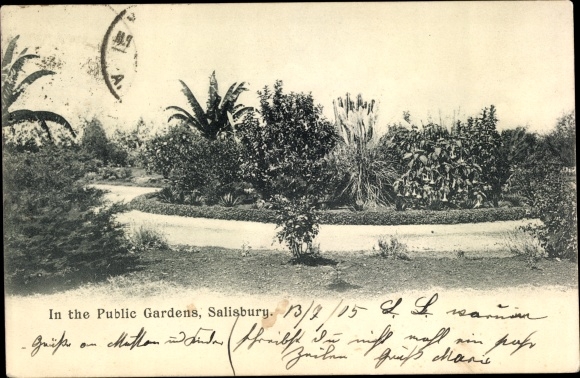 In the Public Gardens, Salisbury. 13/2/05 L. L. warum
Grüße an Mutter und Kinder schreibst Du nicht mahl ein par
Zeilen Gruß Marie